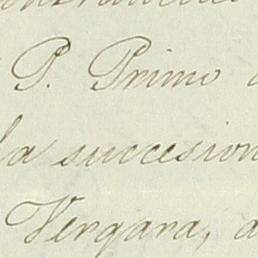 P. Primo
la succesion
Vergara, a